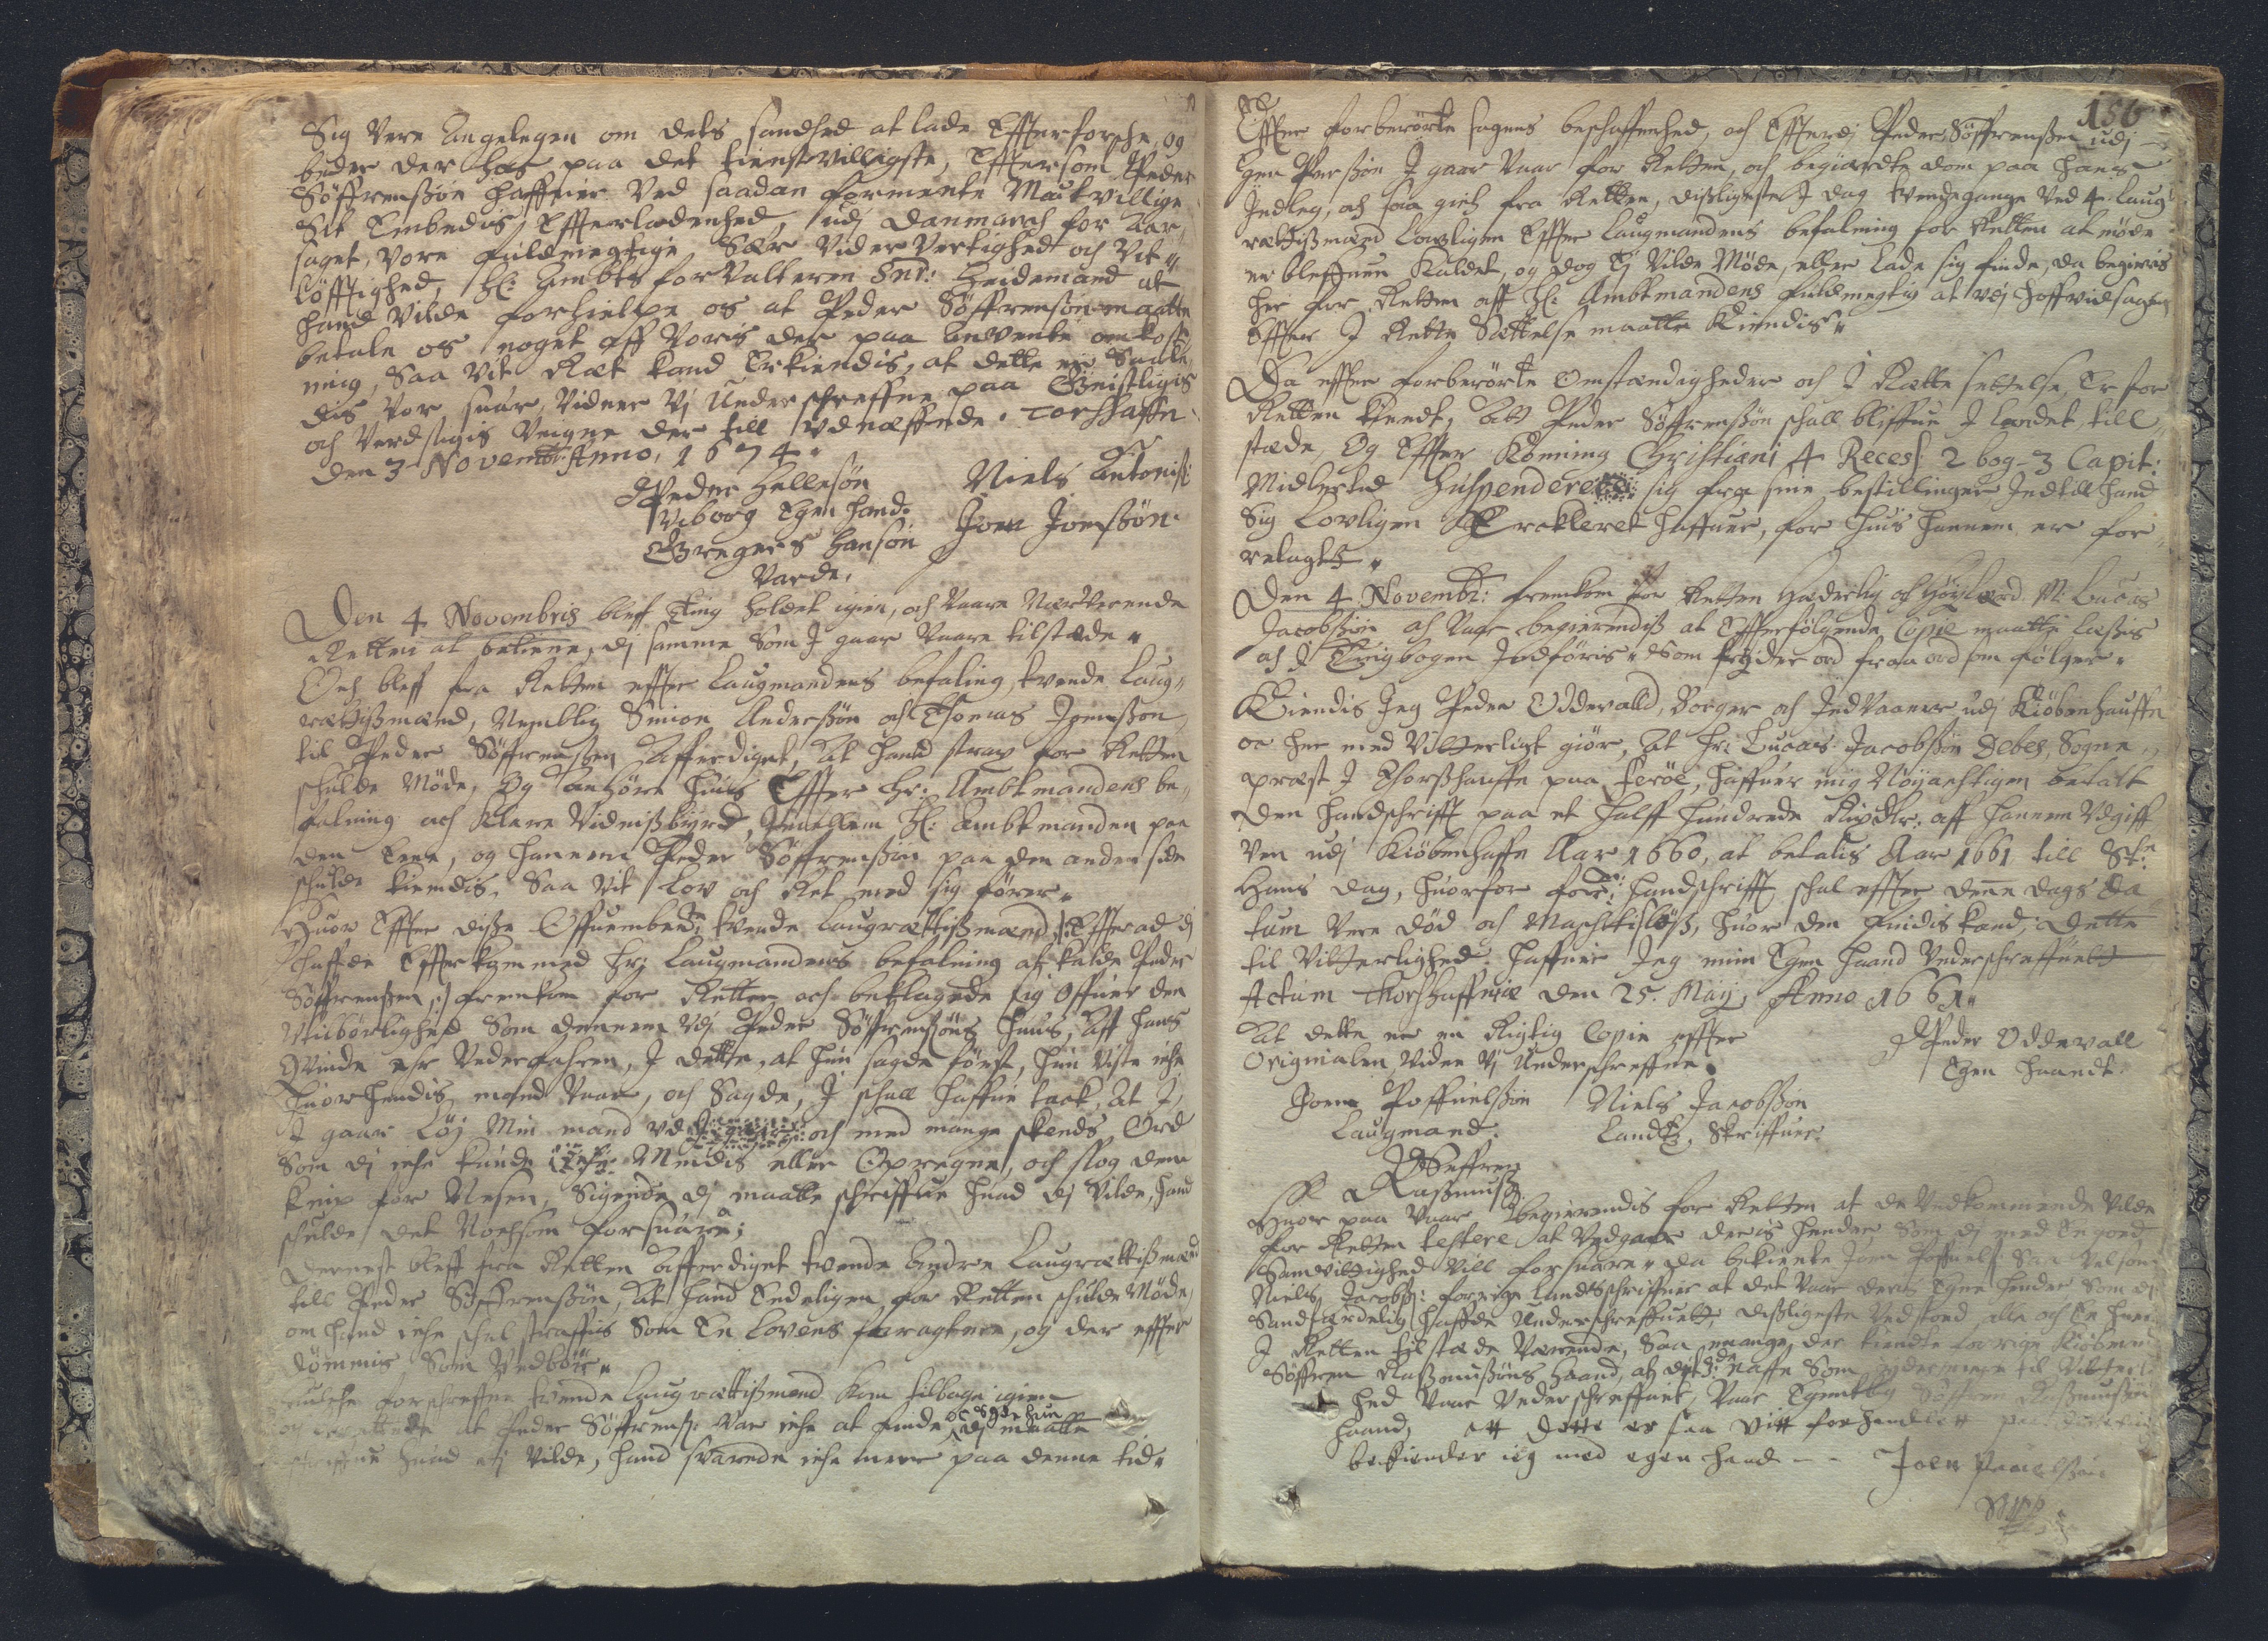 Sig Vere Angelegen om dets sandhed at lade Effterforsche, og
beder der hos paa det tienstvilligste, Effter som Peder
Söffrenssön haffuer Ved saadan formente Muetvillige
Sit Embedis Effterladenhed, udj Danmarch for Aar,
saget, Vore fuldmegtige Stor Vidervertighed och Vit„
löfftighed, H: Ambts forValteren Snr: Heidemand at
hand Vilde forhielpe os at Peder Söffrensön maatte
betale os noget aff Voris der paa anvente omkost„
ning, Saa Vit Ret kand Erkiendis, at dette er Saale„
dis Vor suar, Vidner Vj Underschreffne paa Geistligis
och Verdsligis Veigne der till Udneffnde. Torshaffn
den 3 Novembr: Anno, 1674.
Peder Hellesön Niels Antoniss:
Viborg Egen hand. Joen Jonssön.
Gregers Hansön
Varde.
Den 4 Novembris bleff Ting holdet igien, och Vaare Nerverende
Retten at betiene, dj samme Som J gaar Vaare tilstæde„
Och bleff fra Retten effter Laugmandens befaling, tvende Laug„
rættissmænd, Nemblig Simon Anderssön och Thomas Joenssøn,
til Peder Söffrenssen Afferdiget, At hand strax for Retten
schulde Möde, Og anhöre huis Effter Hr: Ambtmandens be„
falning och Klare Vidnissbyrd, Imellem H: Ambtmanden paa
den Eene, og hannem Peder Söffrenssön paa den anden side
schulde kiendis, Saa Vit Lov och Ret med sig förer„
Huor Effter disse Offuenbete: tvende Laugrættissmænd, Effter ad dj
haffde Effterkommed Hr: Laugmandens befalning at kalde Peder
Söffrenssen, fremkom for Retten och beklagede sig Offuer den
Utilbörlighed Som dennem Udj Peder Söffrenssöns huus, Aff hans
Qvinde er Vederfahren, J dette, at hun sagde först, hun Viste iche
huor hendis mand Vaar, och Sagde, J schall haffue tack, At J
J gaar Löj Min mand och med mange skends Ord
Som dj iche kunde Mindis eller Opregne, och slog dem
knip for Nesen, Sigende dj maatte schriffue huad dj Vilde, hand
schulde det Nochsom forsuare;
Dernest bleff fra Retten Afferdiget tvende Andre Laugrættissmænd
till Peder Söffrenssön, At hand Endeligen for Retten schulde Möde,
om hand iche schal straffis Som En Lovens foragtere, og der effter
dömmis Som Vedbör„
forschreffne tvende Laugrættissmend Kom tilbage igien
at Peder Söffrenss: Var iche at finde, oc sagde hun dj maatte
huad dj Vilde, hand svarede iche mere paa denne tid„
156
Effter forberörte sagens beschaffenhed, och Effterdj Peder Söffrenssen udj
Egen Perssön J gaar Vaar for Retten, och begierdte dom paa hans
Indleg, och saa gich fra Retten, disligeste J dag tvende gange Ved 4 Laug
rættissmænd Lovligen Effter Laugmandens befalning for Retten at möde
er bleffuen Kaldet, og dog Ej Vilde Möde, eller Lade sig finde, da begieris
her for Retten aff H: Ambtmandens fuldmegtig at udj hoffvidsagen
Effter J Rette Settelse maatte Kiendis„
Da effter forberörte Omstændigheder och J Rette settelse, Er for
Retten kiendt, Att Peder Söffrenssön schall bliffue J Landet till„
stæde, Og Effter Konning Christiani 4 Recess 2 bog 3 Capit:
Midlertid Suspendere sig fra sine bestillinger Indtill hand
Sig Lovligen Erckleret haffuer, for huis hannem er for„
relagtt„
Den 4 Novembr: fremkom for Retten Hæderlig og Höylærd M: Lucas
Jacobssön och Vaar begierendiss at Effterfölgende Copie maatte Læssis
och J Tingbogen Indföris„ Som lyder ord fra ord som fölger„
Kiendis Jeg Peder Oddevalld, Borger och IndVaaner udj Kiöbenhauffn
oc her med Vitterligt giör, At Hr: Lucas Jacobssön Debes, Sogne„
præst J Thorsshauffn paa Feröe, haffuer mig Nöyachtigen betalt
den handschrifft paa et halff hundrede Rixdlr: aff hannem Udgiff
Ven udj Kiöbenhaffn Aar 1660, at betalis Aar 1661 till Stn:
Hans dag, huorfor forne: handschrifft schal effter denne dags da
tum Vere död och Machtislöss, huor den findis kand; dette
til Vitterlighed: haffuer Jeg min Egen haand Underschreffuelt
Actum Thorshaffniæ den 25. Maij, Anno 1661„
At dette er en Rigtig Copie effter Peder Oddevall
Originalen, Vidner Vj Underschreffne Egen haandt.
Joen Poffuelssön Niels Jacobssön
Laugmand. Landtz. Skriffuer.
Seffren
Rassmuss
Huor paa Vaar begierendis for Retten at de Vedkommende Vilde
for Retten testere at Vedgaar deris hender Som dj med En goed
Samvittighed Vill forsuare„ da bekiente Joen Poffuels: Saa Velsom
Niels Jacobss: forige Landtschriffuer at det Vaar deris Egne hender Som dj
Sandfærdelig haffde Underschreffuelt, desligeste Vedstoed alle och En huer
J Retten tilstæde Værende, Saa mange der kiendte forrige Kiöbmand
Söffren Rassmussöns haand, at dete: Naffn Som ydermere til Vitterlig
hed Vaar Underschreffuet, Vaar Egentlig Söffren Rasmussöns
haand, att dette er saa Vitt forhandlett
bekiender ieg med egen hand - - Joen Poulssön